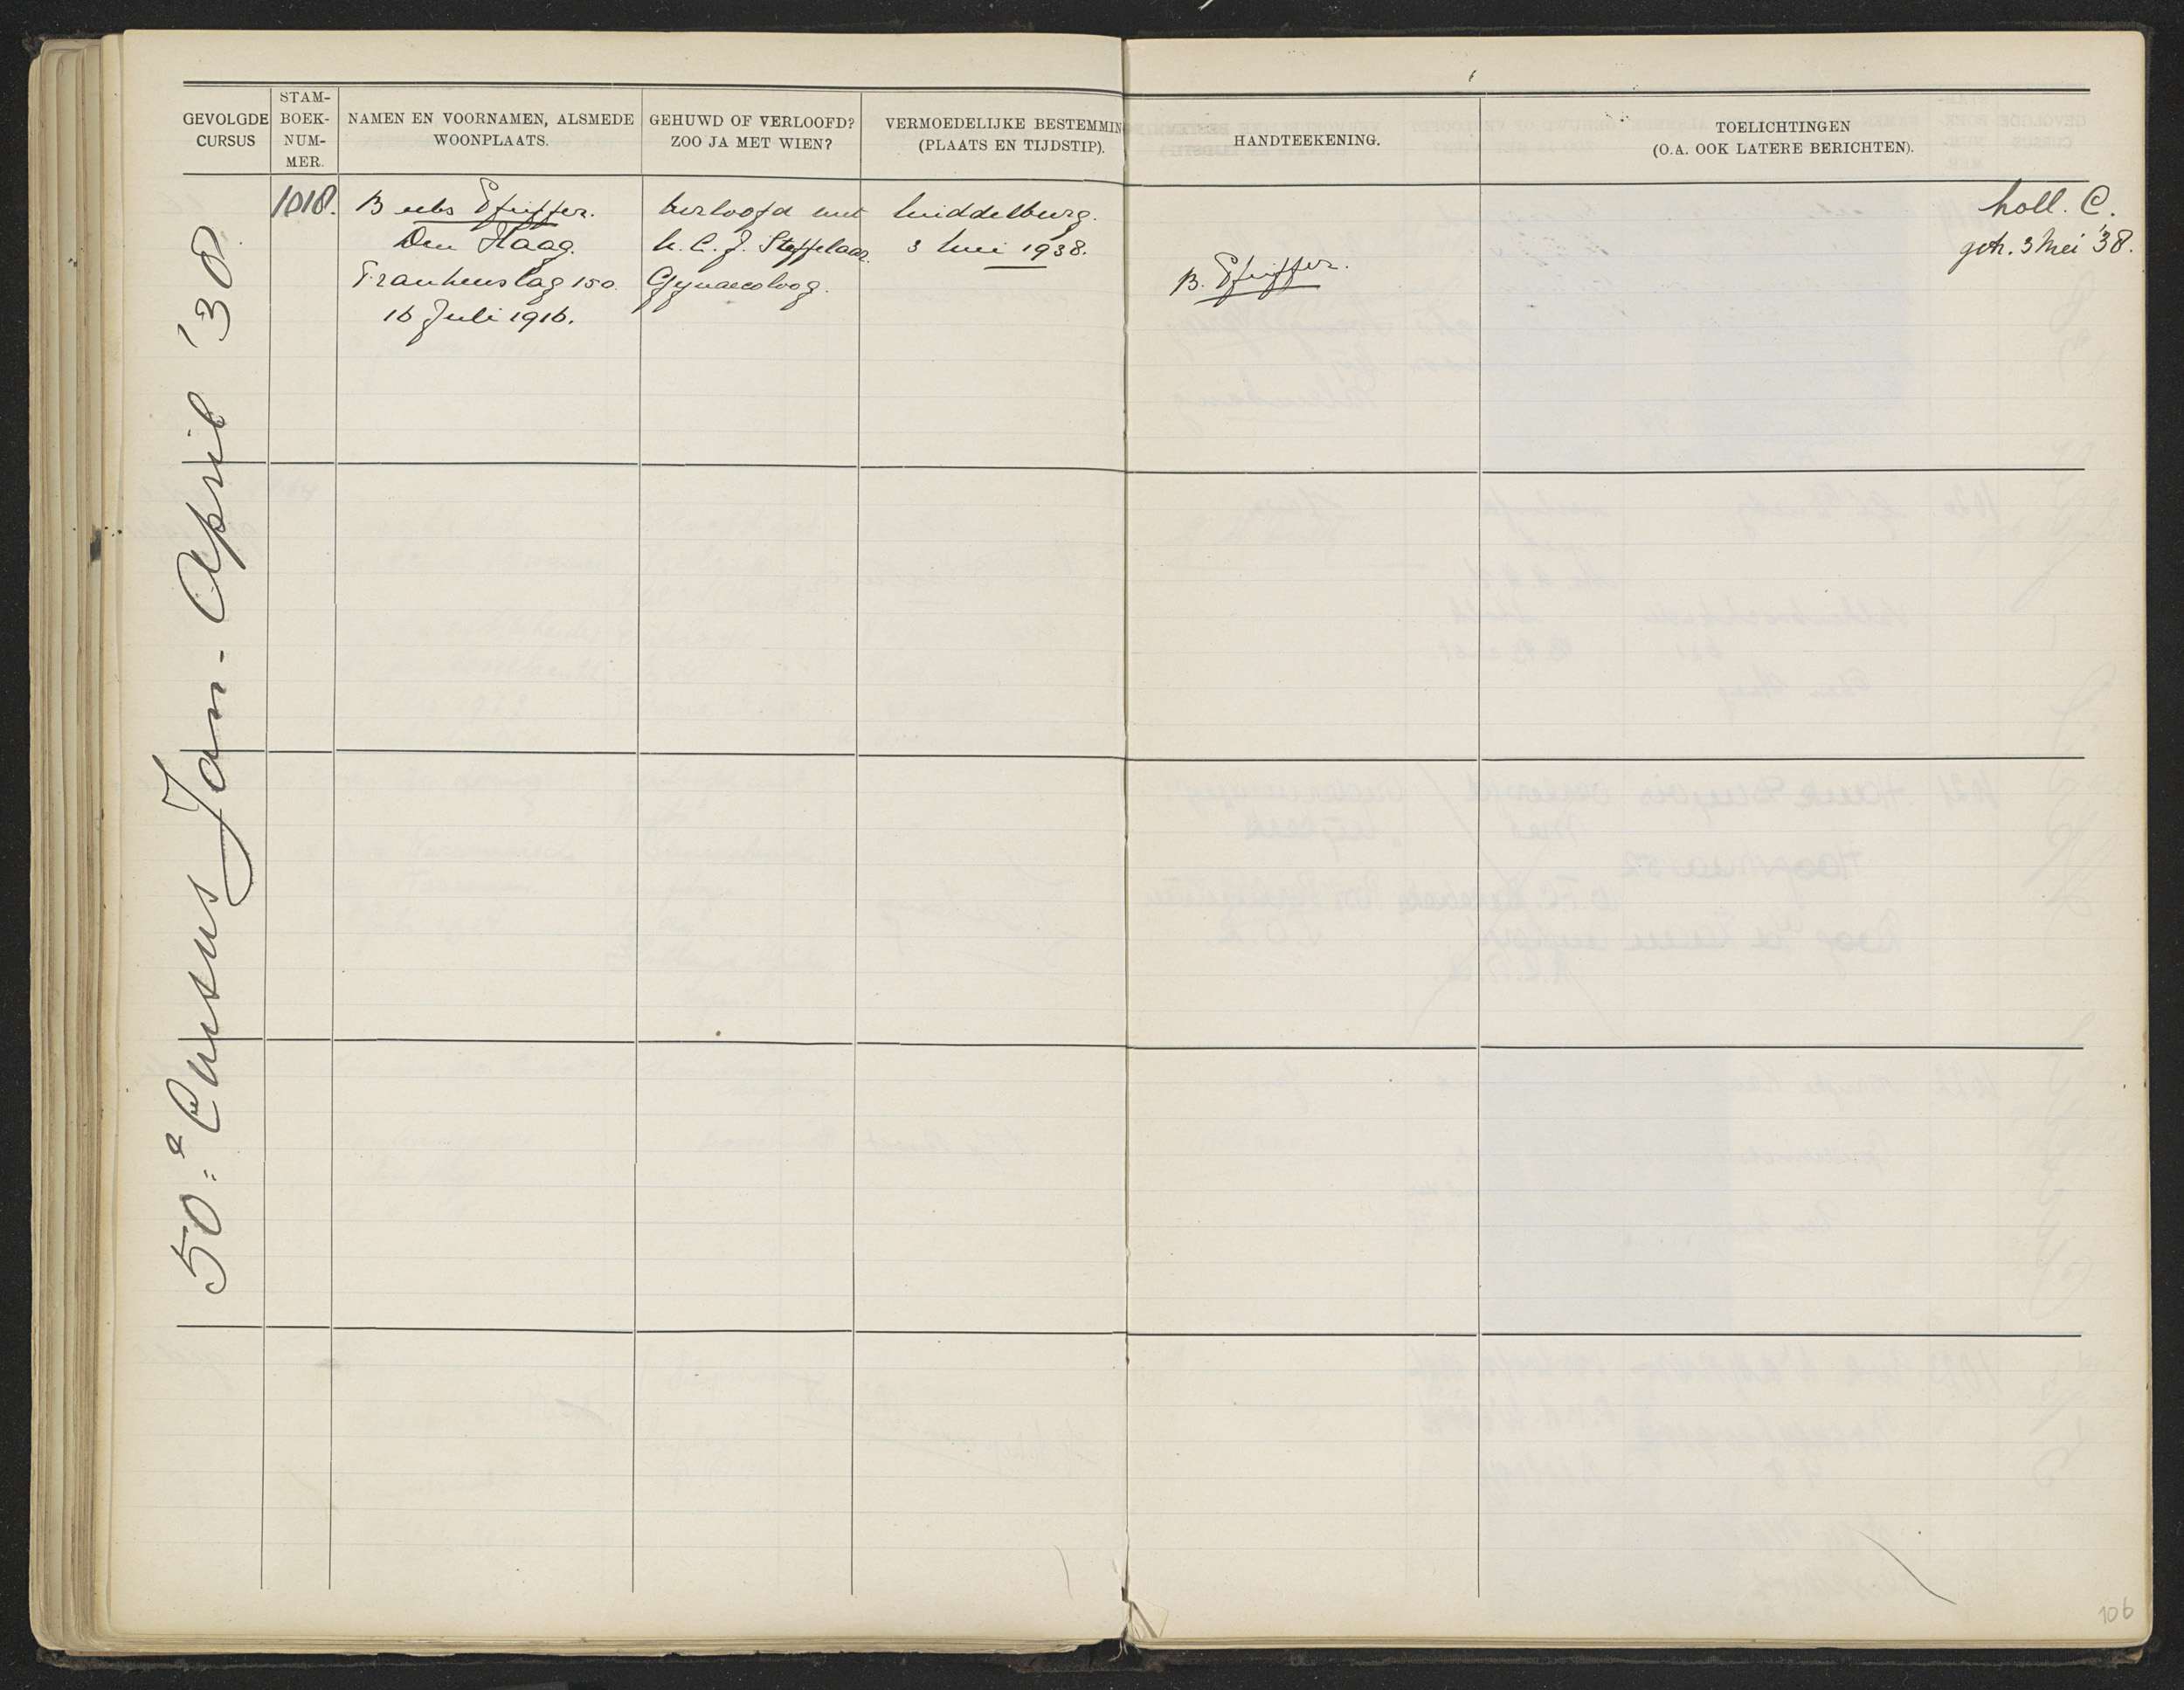 GEVOLGDE CURSUS
STAM-BOEK-NUM-MER.
NAMEN EN VOORNAMEN, ALSMEDE WOONPLAATS.
GEHUWD OF VERLOOFD? ZOO JA MET WIEN?
VERMOEDELIJKE BESTEMMIN (PLAATS EN TIJDSTIP).
HANDTEEKENING.
TOELICHTINGEN (O.A. OOK LATERE BERICHTEN).
50e Cursus Jan - April '38
1018.
Bubs Pfeiffer.
Den Haag.
Frankenslag 150.
16 Juli 1916.
Verloofd met
M. C. J. Steffelaar.
Gynaecoloog.
Middelburg.
3 Mei 1938.
B. Pfeiffer.
holl. C.
getr. 3 Mei '38.
106